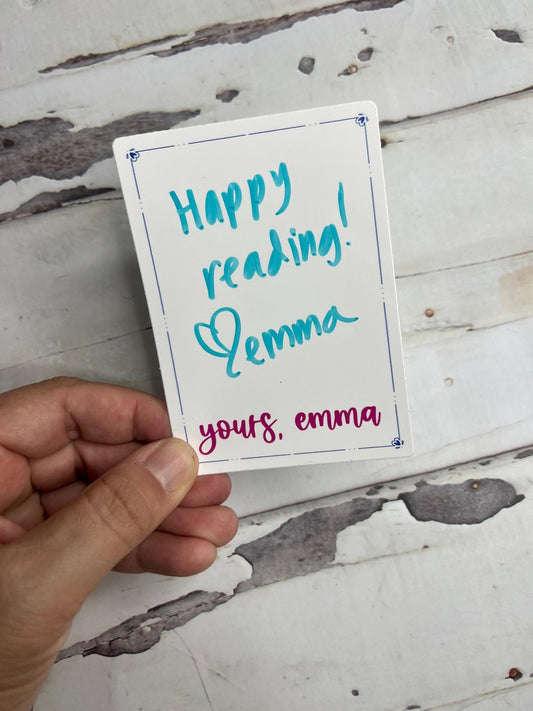 Happy
reading!
emma
yours, emma